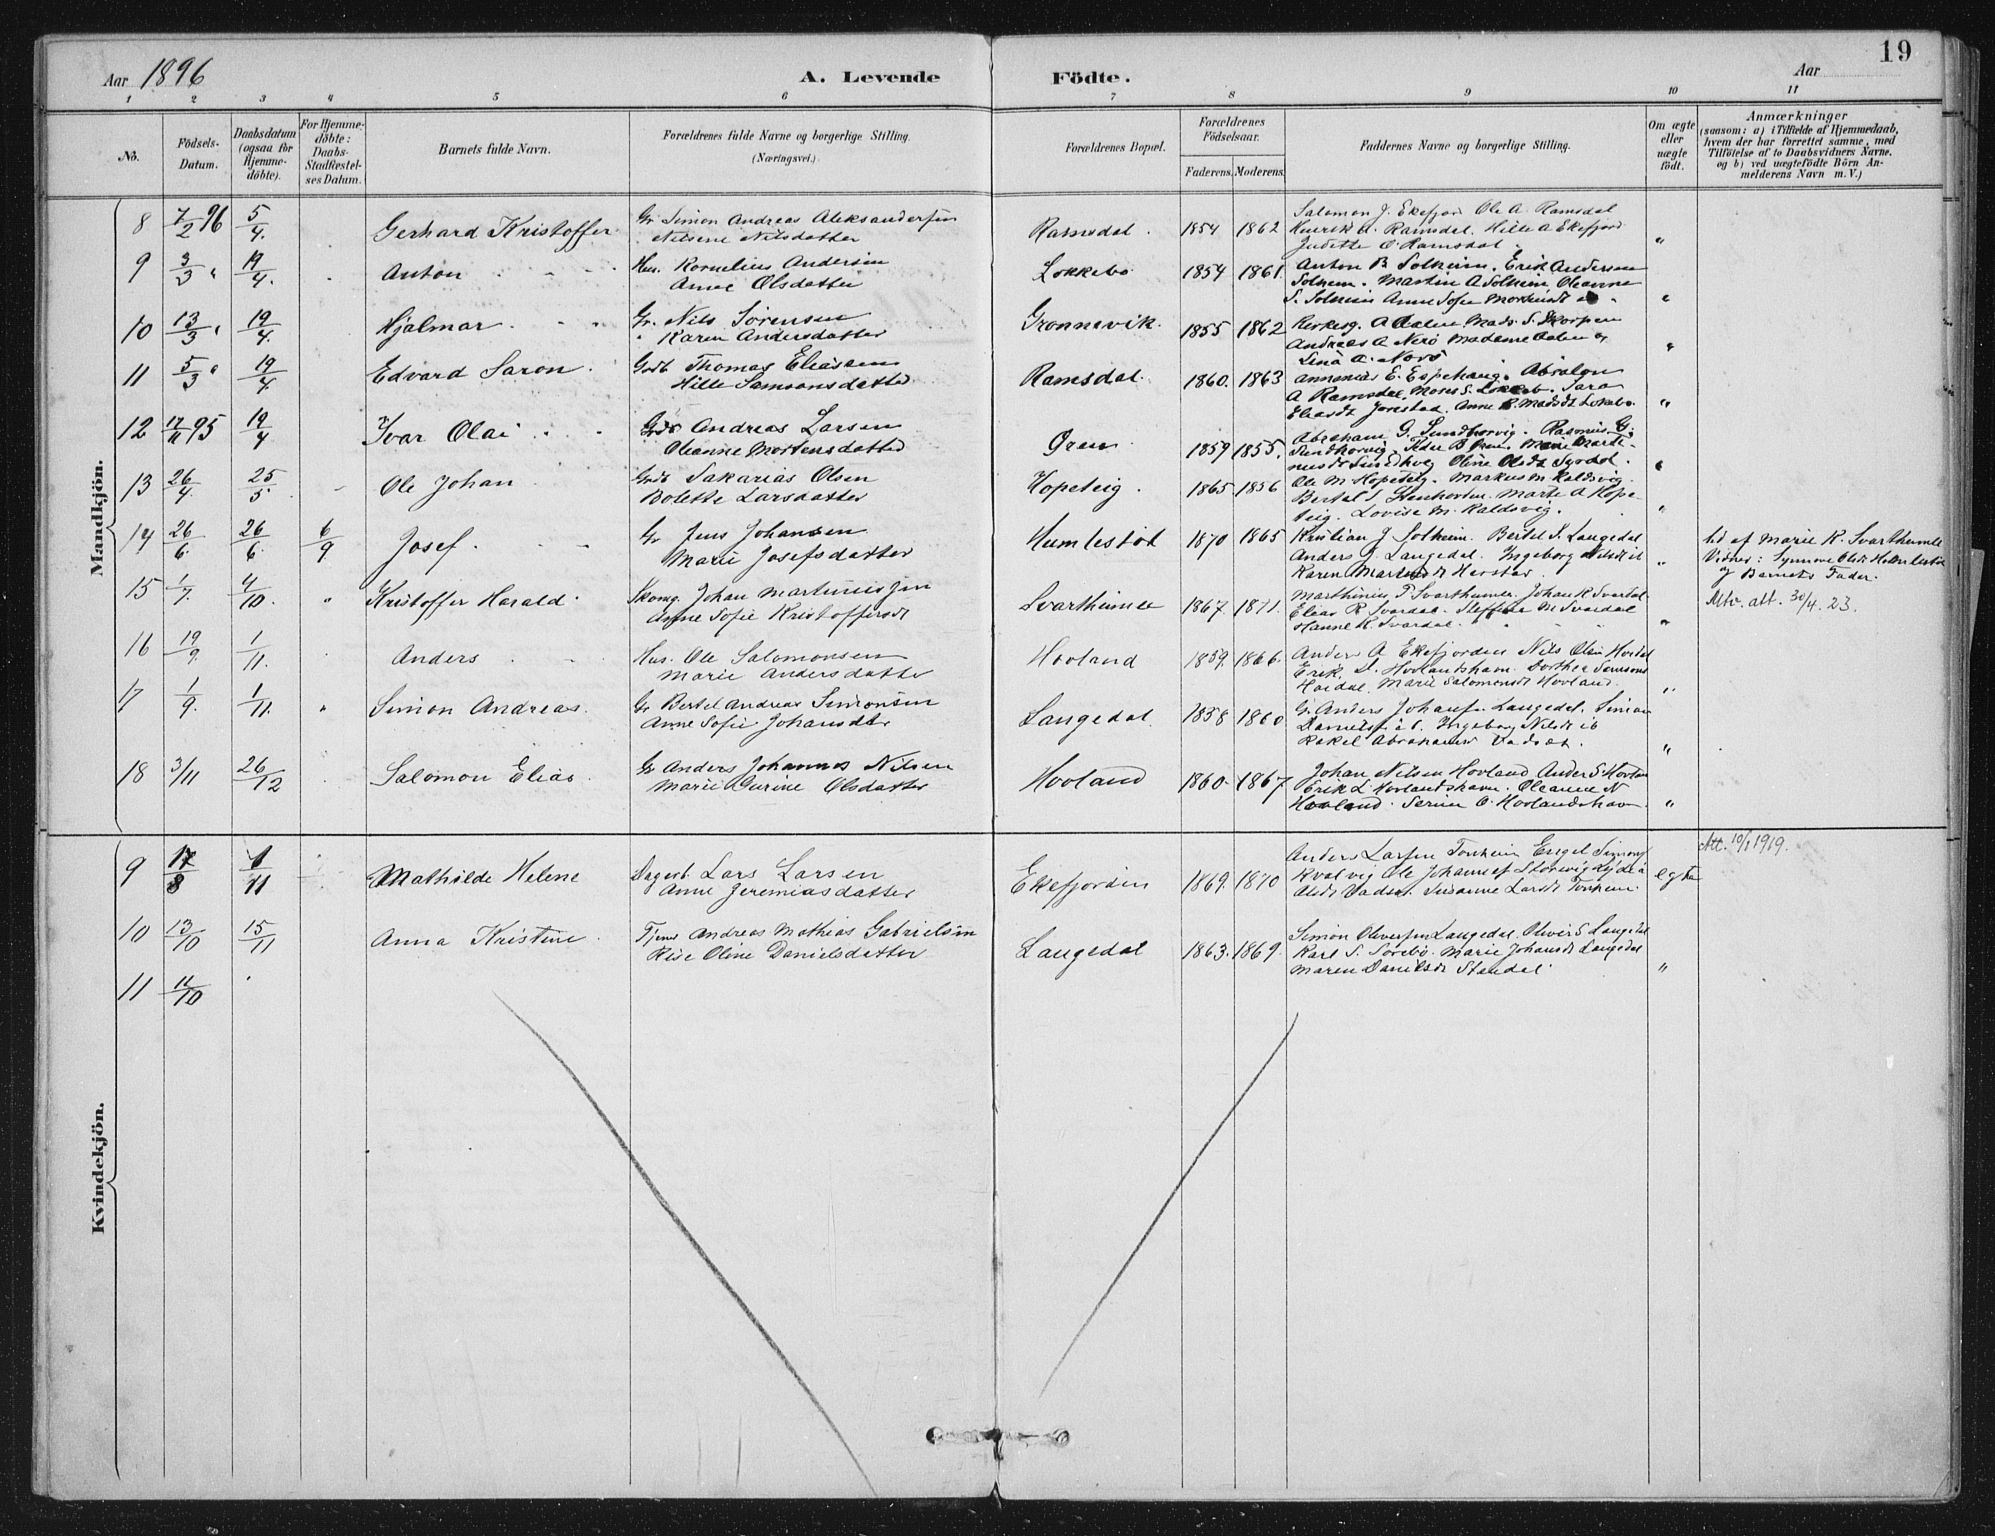 19
Aar 1896 A. Levende Födte. Aar
1 2 3 4 5 6 7 8 9 10 11
No. Födsels-Datum. Daabsdatum (ogsaa for Hjemme-döbte). For Hjemme-döbte: Daabs-Stadfæstel-ses Datum. Barnets fulde Navn. Forældrenes fulde Navne og borgerlige Stilling. (Næringsvei.) Forældrenes Bopæl. Forældrenes Födselsaar. Faderens. Moderens. Faddernes Navne og borgerlige Stilling. Om ægte eller uægte födt. Anmærkninger (saasom: a) i Tilfælde af Hjemmedaab, hvem der har forrettet samme, med Tilföielse af to Daabsvidners Navne. og b) ved uægtefödte Börn An-melderens Navn m. V.)
Mandkjön.
8 7/2 96 5/4. Gerhard Kristoffer Gr Simon Andreas Aleksandersen Ramsdal. 1854 1862 Salomon J. Ekefjord Ole A. Ramsdal
Nilsine Nilsdatter Henrik A. Ramsdal. Hille A Ekefjord
Judette O Ramsdal "
9 3/3 " 19/4. Anton Hus. Kornelius Andersen Lokkebø 1854 1861. Anton B Solheim. Erik Andersen
Anne Olsdatter Solheim. Martin A Solheim Oleanne
S. Solheim Anne Sofie
10 13/3 " 19/4. Hjalmar. Gr. Nils Sørensen Grønnevik. 1855 1862 Kirkesg. A Aalen Mads S. Skorpen
" Karen Andersdatter Andreas A Madame Aalen og
Lina A.
11 5/3 " 19/4 Edvard Saron. Grdb Thomas Eliassen Ramsdal. 1860. 1863 Annanias E. Espehaug. Absalon
Hille Samsonsdatter A Ramsdal, Moses S. Løkkeb. Sara
Eliasdt Anne Madsdt Løkebø. "
12 17/11 95 19/4 Ivar Olai Grdb Andreas Larsen Øren 1859 1855. Abraham G. Sundhorvig. Rasmus G.
Oleanne Mortensdatter Sundhorvig, Peder B Øren, Marie Marti-
nusdt Oline Olsdt
13 26/4 25/5 Ole Johan Grdb Sakarias Olsen Hopeteig. 1865 1856 Ole M Hopeteig. Markus M Kaldsvig.
Bolette Larsdatter Bertel S Marte A Hope-
teig. Lovise M. Kaldsvig. "
14 26/6 26/6. 6/9 Josef. Gr Jens Johansen Humlestøl 1870 1865 Kristian J Solheim. Bertel S. Langedal hd af Marie K. Svarthumle
Marie Josefsdatter Anders J. Langedal. Ingeborg Nilsdt ib " Vidner: Synnøve Olsdt Humlestøl
Karen Martinsdt Herstad og Barnets Fader.
15 1/7. 4/10. " Kristoffer Harald. Skomg. Johan Martinussen Svarthumle 1867. 1871. Marthinius P Svarthumle. Johan K Svardal Abv. att. 30/4. 23.
Anne Sofie Kristoffersdt Elias R Svardal. Steffine M Svardal
Hanne K. Svardal. "
16 19/9. 1/11. Anders Hus. Ole Salomonsen Hovland 1859. 1866. Anders A Ekefjorden Nils Olsen Hordal
Marie Andersdatter Erik L. Hovlandshavn. Dorthea Samsonsd
Hordal. Marie Salomonsdt Hovland. "
17 1/9. 1/11. " Simon Andreas. Gr Bertel Andreas Simonsen Langedal. 1858 1860 Gr. Anders Johansf. Langedal. Simon
Anne Sofie Johansdtr Danielsf ib. Ingeborg Nilsdt ib
Rakel Abrahamsd Vadset. "
18 3/11 26/12 Salomon Elias. Gr Anders Johannes Nilsen Hovland 1860. 1867 Johan Nilsen Hovland Anders Hovlan
Marie Gurine Olsdatter Erik L Hovlandshavn. Oleanne N
Hovland. Serine O. Hovlandshavn. "
Kvindekjön.
Att. 10/1 1919.
9 17/8 1/11 Mathilde Helene Dagarb. Lars Larsen Ekefjorden 1869. 1870 Anders Larsen Tonheim Engel Simons ægte
Anne Jeremiasdatter Kvalvig Ole Johansf Storevig Lydia
Olsdt Vadset. Susanne Larsdt Tonheim.
10 13/10 15/11 Anna Kristine. Tjener Andreas Mathias Gabrielsen Langedal 1863. 1869. Simon Oliversen Langedal. Oliver S Langedal
Oline Danielsdatter Karl S. Sørebø. Marie Johansdt Langedal
Maren Danielsdt Standal. "
11 12/10